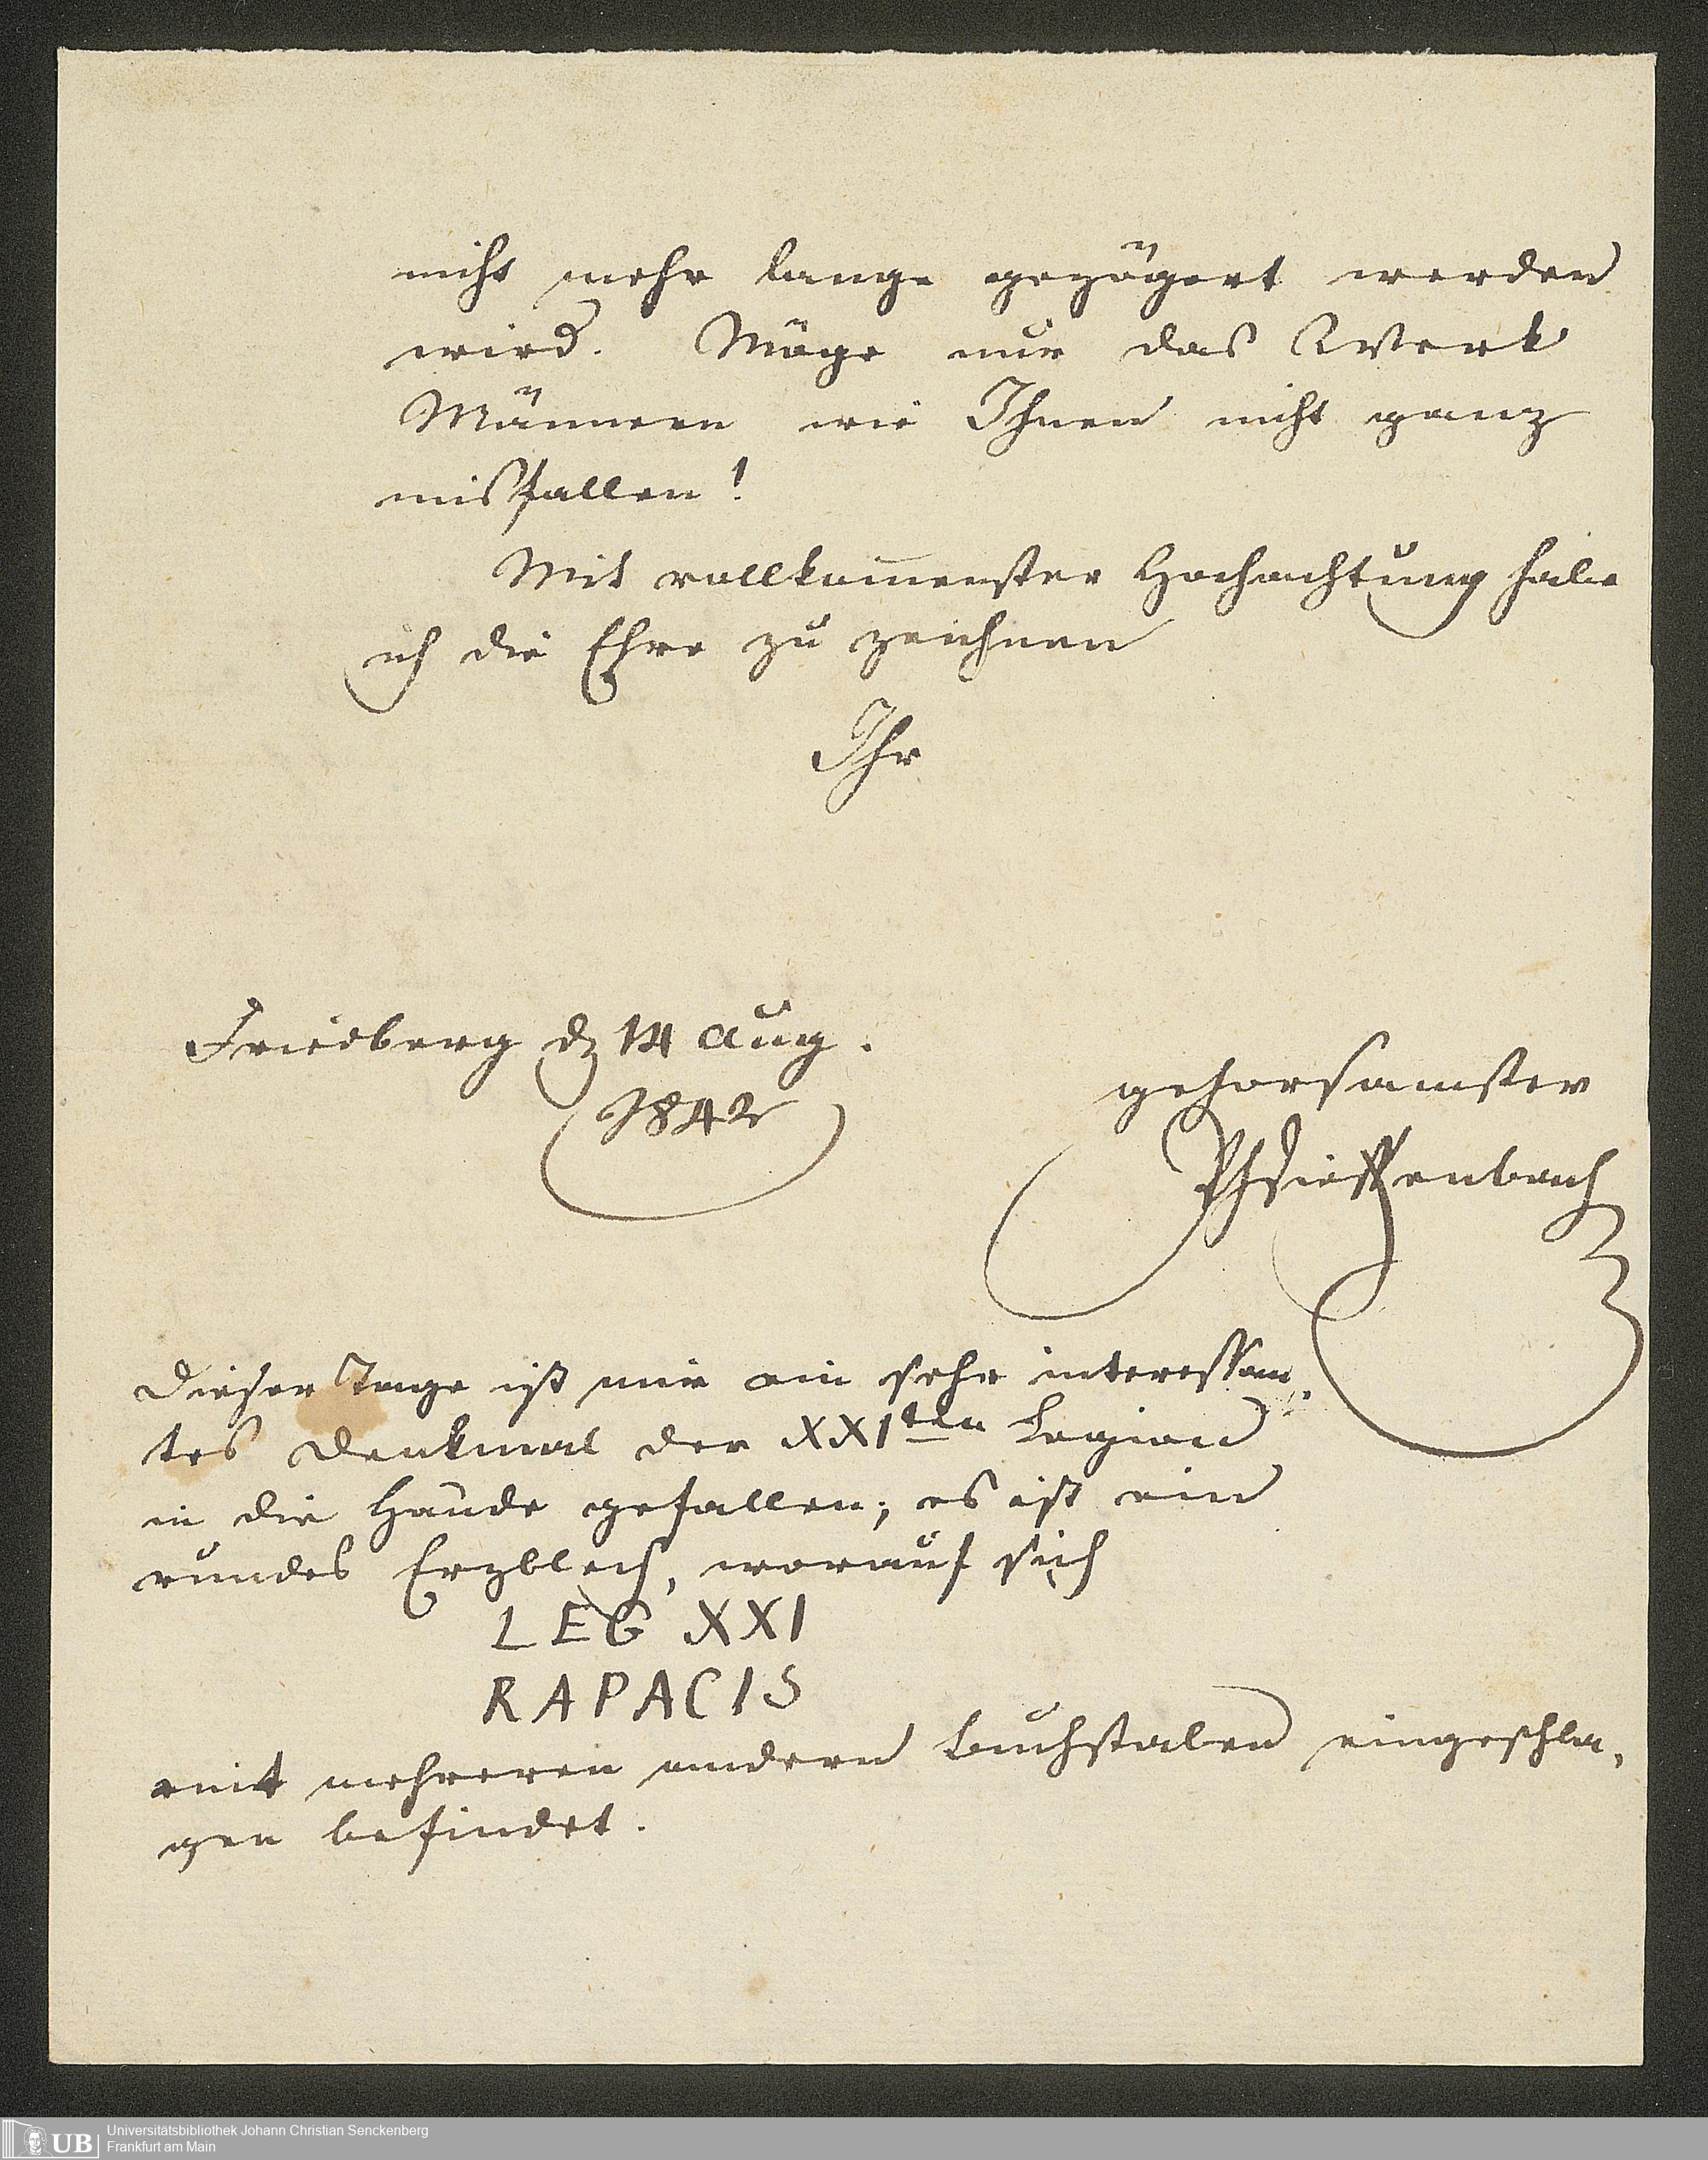 nicht mehr lange gezögert werden
wird. Möge nur das Werk
Männern wie Ihnen nicht ganz
misfallen!
Mit vollkom̅enster Hochachtung habe
ich die Ehre zu zeichnen
Ihr
Friedberg d 14 Aug.
1842
gehorsamster
PhDieffenbach
Dieser Tage ist mir ein sehr interessan,
tes Denkmal der XXIten Legion
in die Hände gefallen; es ist ein
rundes Erzblech, worauf sich
LEG XXI
RAPACIS
mit mehreren andern Buchstaben eingeschla,
gen befindet.
Universitätsbibliothek Johann Christian Senckenberg
UB Frankfurt am Main